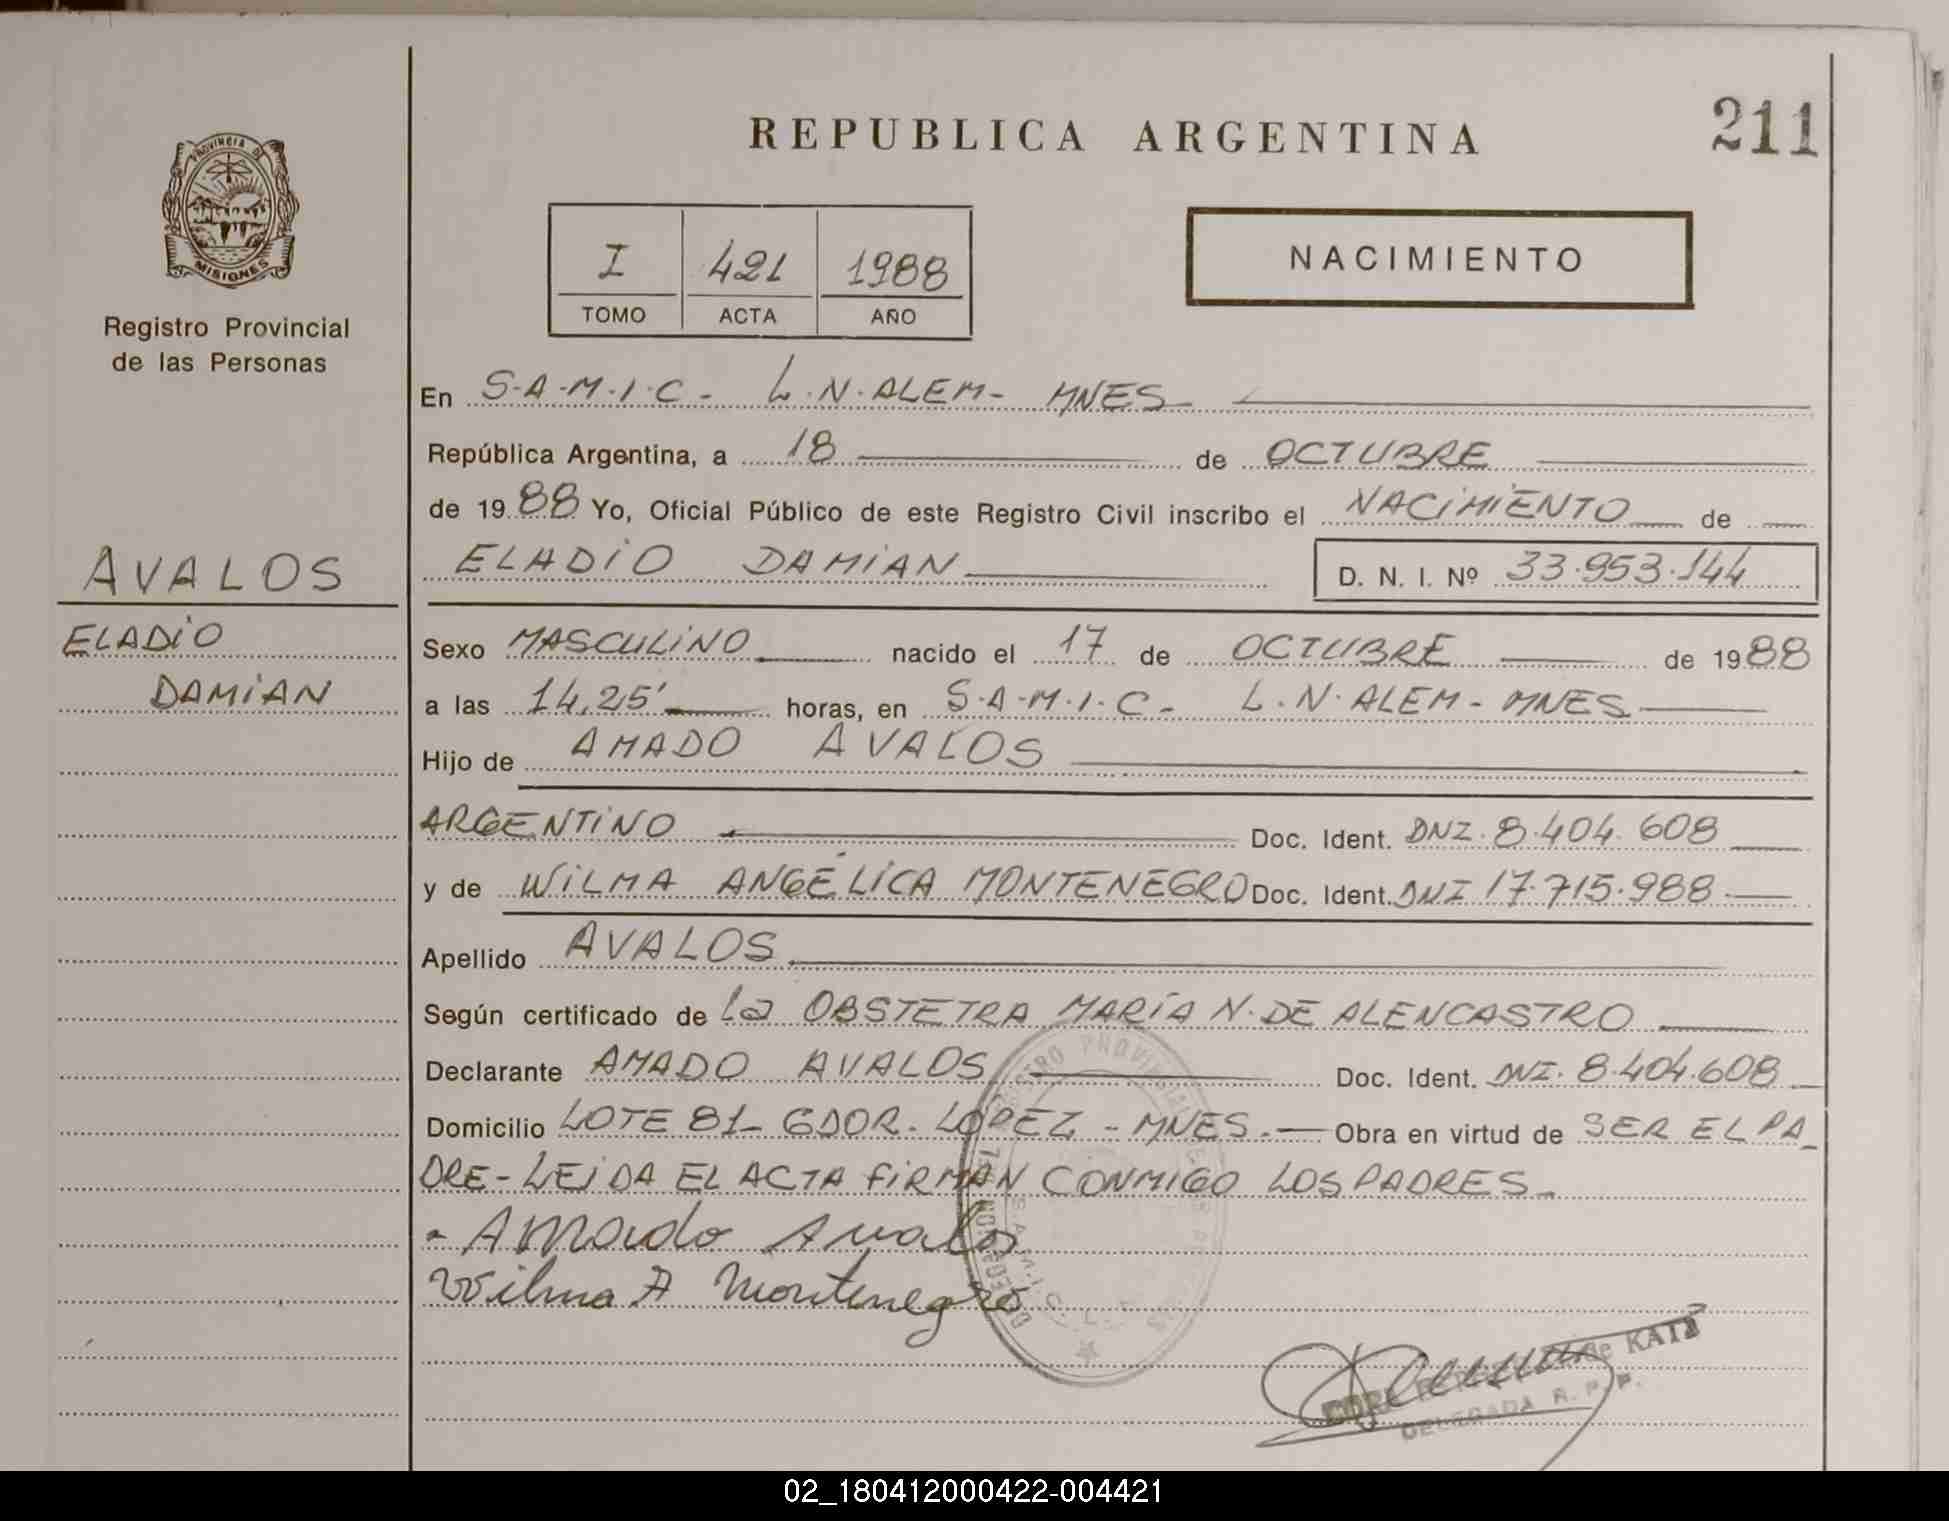 211
REPUBLICA ARGENTINA
PROVINCIA DE
MISIONES
Registro Provincial
de las Personas
I 421 1988
TOMO ACTA AÑO
NACIMIENTO
En S.A.M.I.C- L.N.ALEM- MNES
República Argentina, a 18 de OCTUBRE
de 1988 Yo, Oficial Público de este Registro Civil inscribo el NACIMIENTO de
ELADIO DAMIAN D. N. I. Nº 33.953.144
AVALOS
ELADIO
DAMIAN
Sexo MASCULINO nacido el 17 de OCTUBRE de 1988
a las 14,25' horas, en S.A.M.I.C- L.N.ALEM- MNES
Hijo de AMADO AVALOS
ARGENTINO Doc. Ident. DNI. 8.404.608
y de WILMA ANGÉLICA MONTENEGRO Doc. Ident. DNI 17.715.988
Apellido AVALOS
Según certificado de la OBSTETRA MARÍA N. DE ALENCASTRO
Declarante AMADO AVALOS Doc. Ident. DNI. 8.404.608
Domicilio LOTE 81- GDOR. LÓPEZ - MNES. Obra en virtud de SER EL PA_
DRE- LEIDA EL ACTA FIRMAN CONMIGO LOS PADRES_
Amado Avalos
Wilma A Montenegro
de KATZ
DELEGADA R. P. P.
02_180412000422-004421